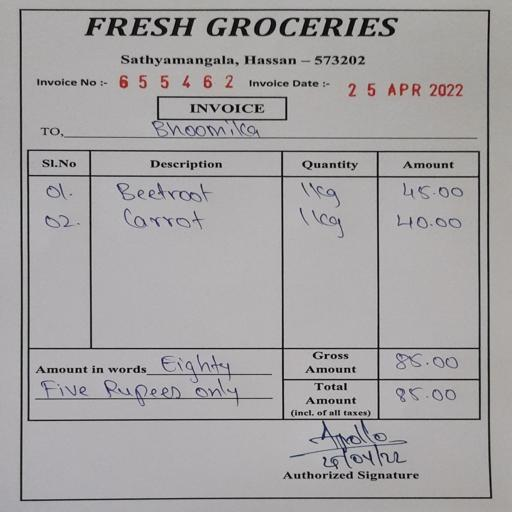 FRESH GROCERIES
Sathyamangala, Hassan – 573202
Invoice No :- 655462 Invoice Date :- 25 APR 2022
INVOICE
TO, Bhoomika
Sl.No Description Quantity Amount
01. Beetroot 1kg 45.00
02. Carrot 1kg 40.00
Amount in words Eighty Five Rupees only
Gross Amount 85.00
Total Amount (incl. of all taxes) 85.00
Apollo
Authorized Signature